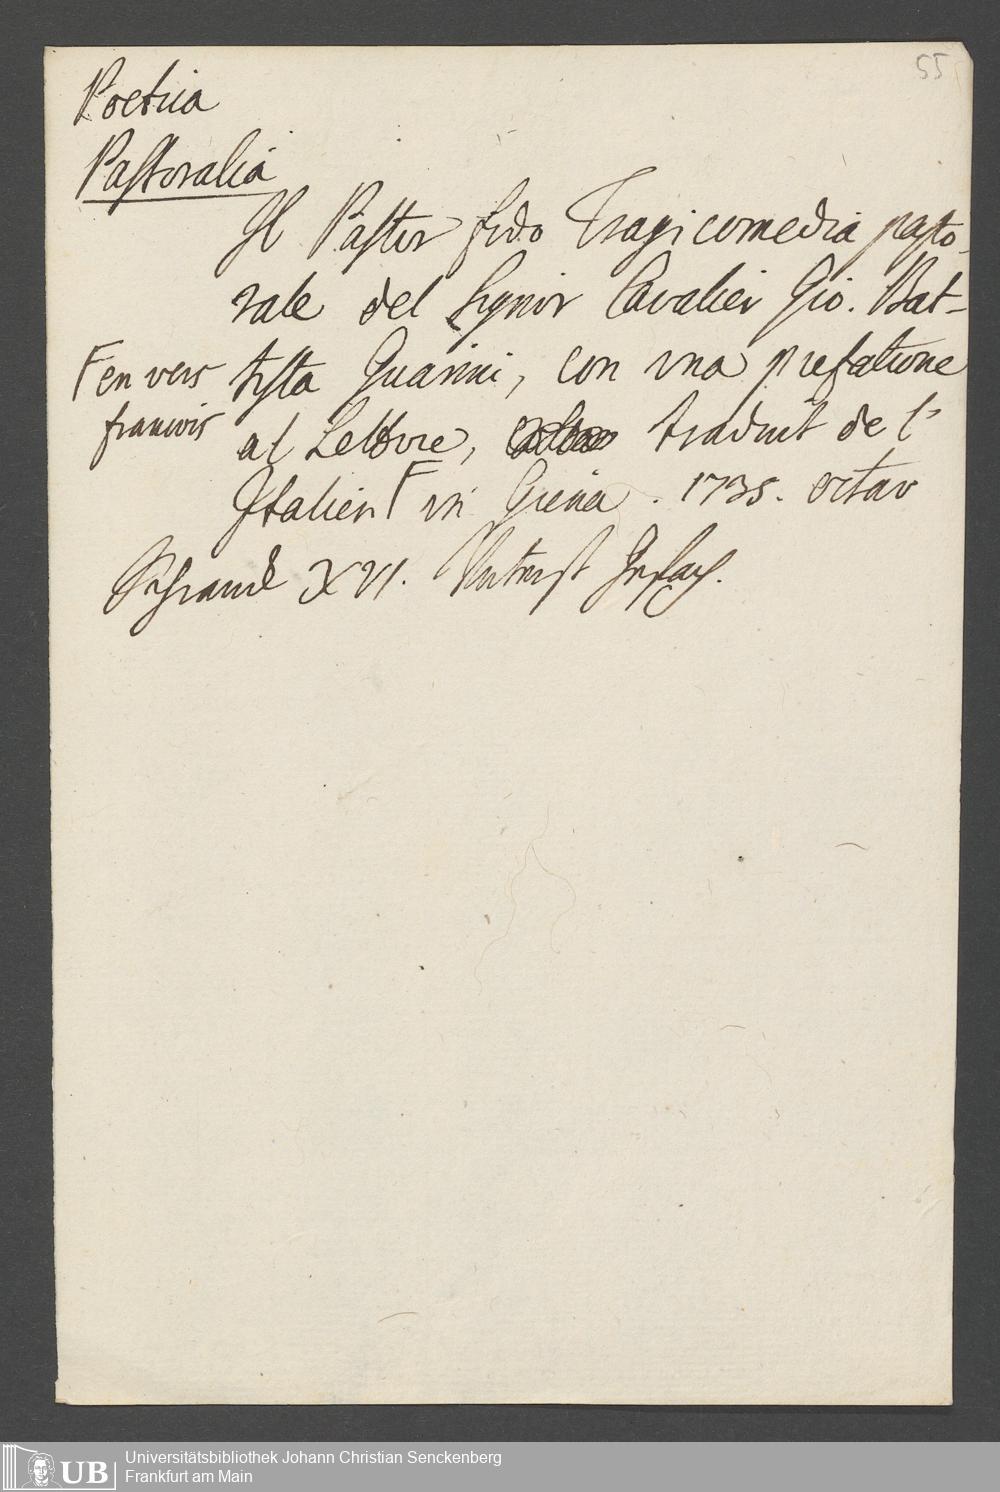 55
Poetica
Pastoralia
Il Pastor fido Tragicomedia pasto-
rale del Signor Cavalier Gio. Bat-
tista Guarini, con una prefatione
al Lettore, traduit de l'
Italien Γ in Grena. 1735. octav
Γ en vers
francois
Schranck XVI. Unterst Gefach.
Universitätsbibliothek Johann Christian Senckenberg
Frankfurt am Main
UB